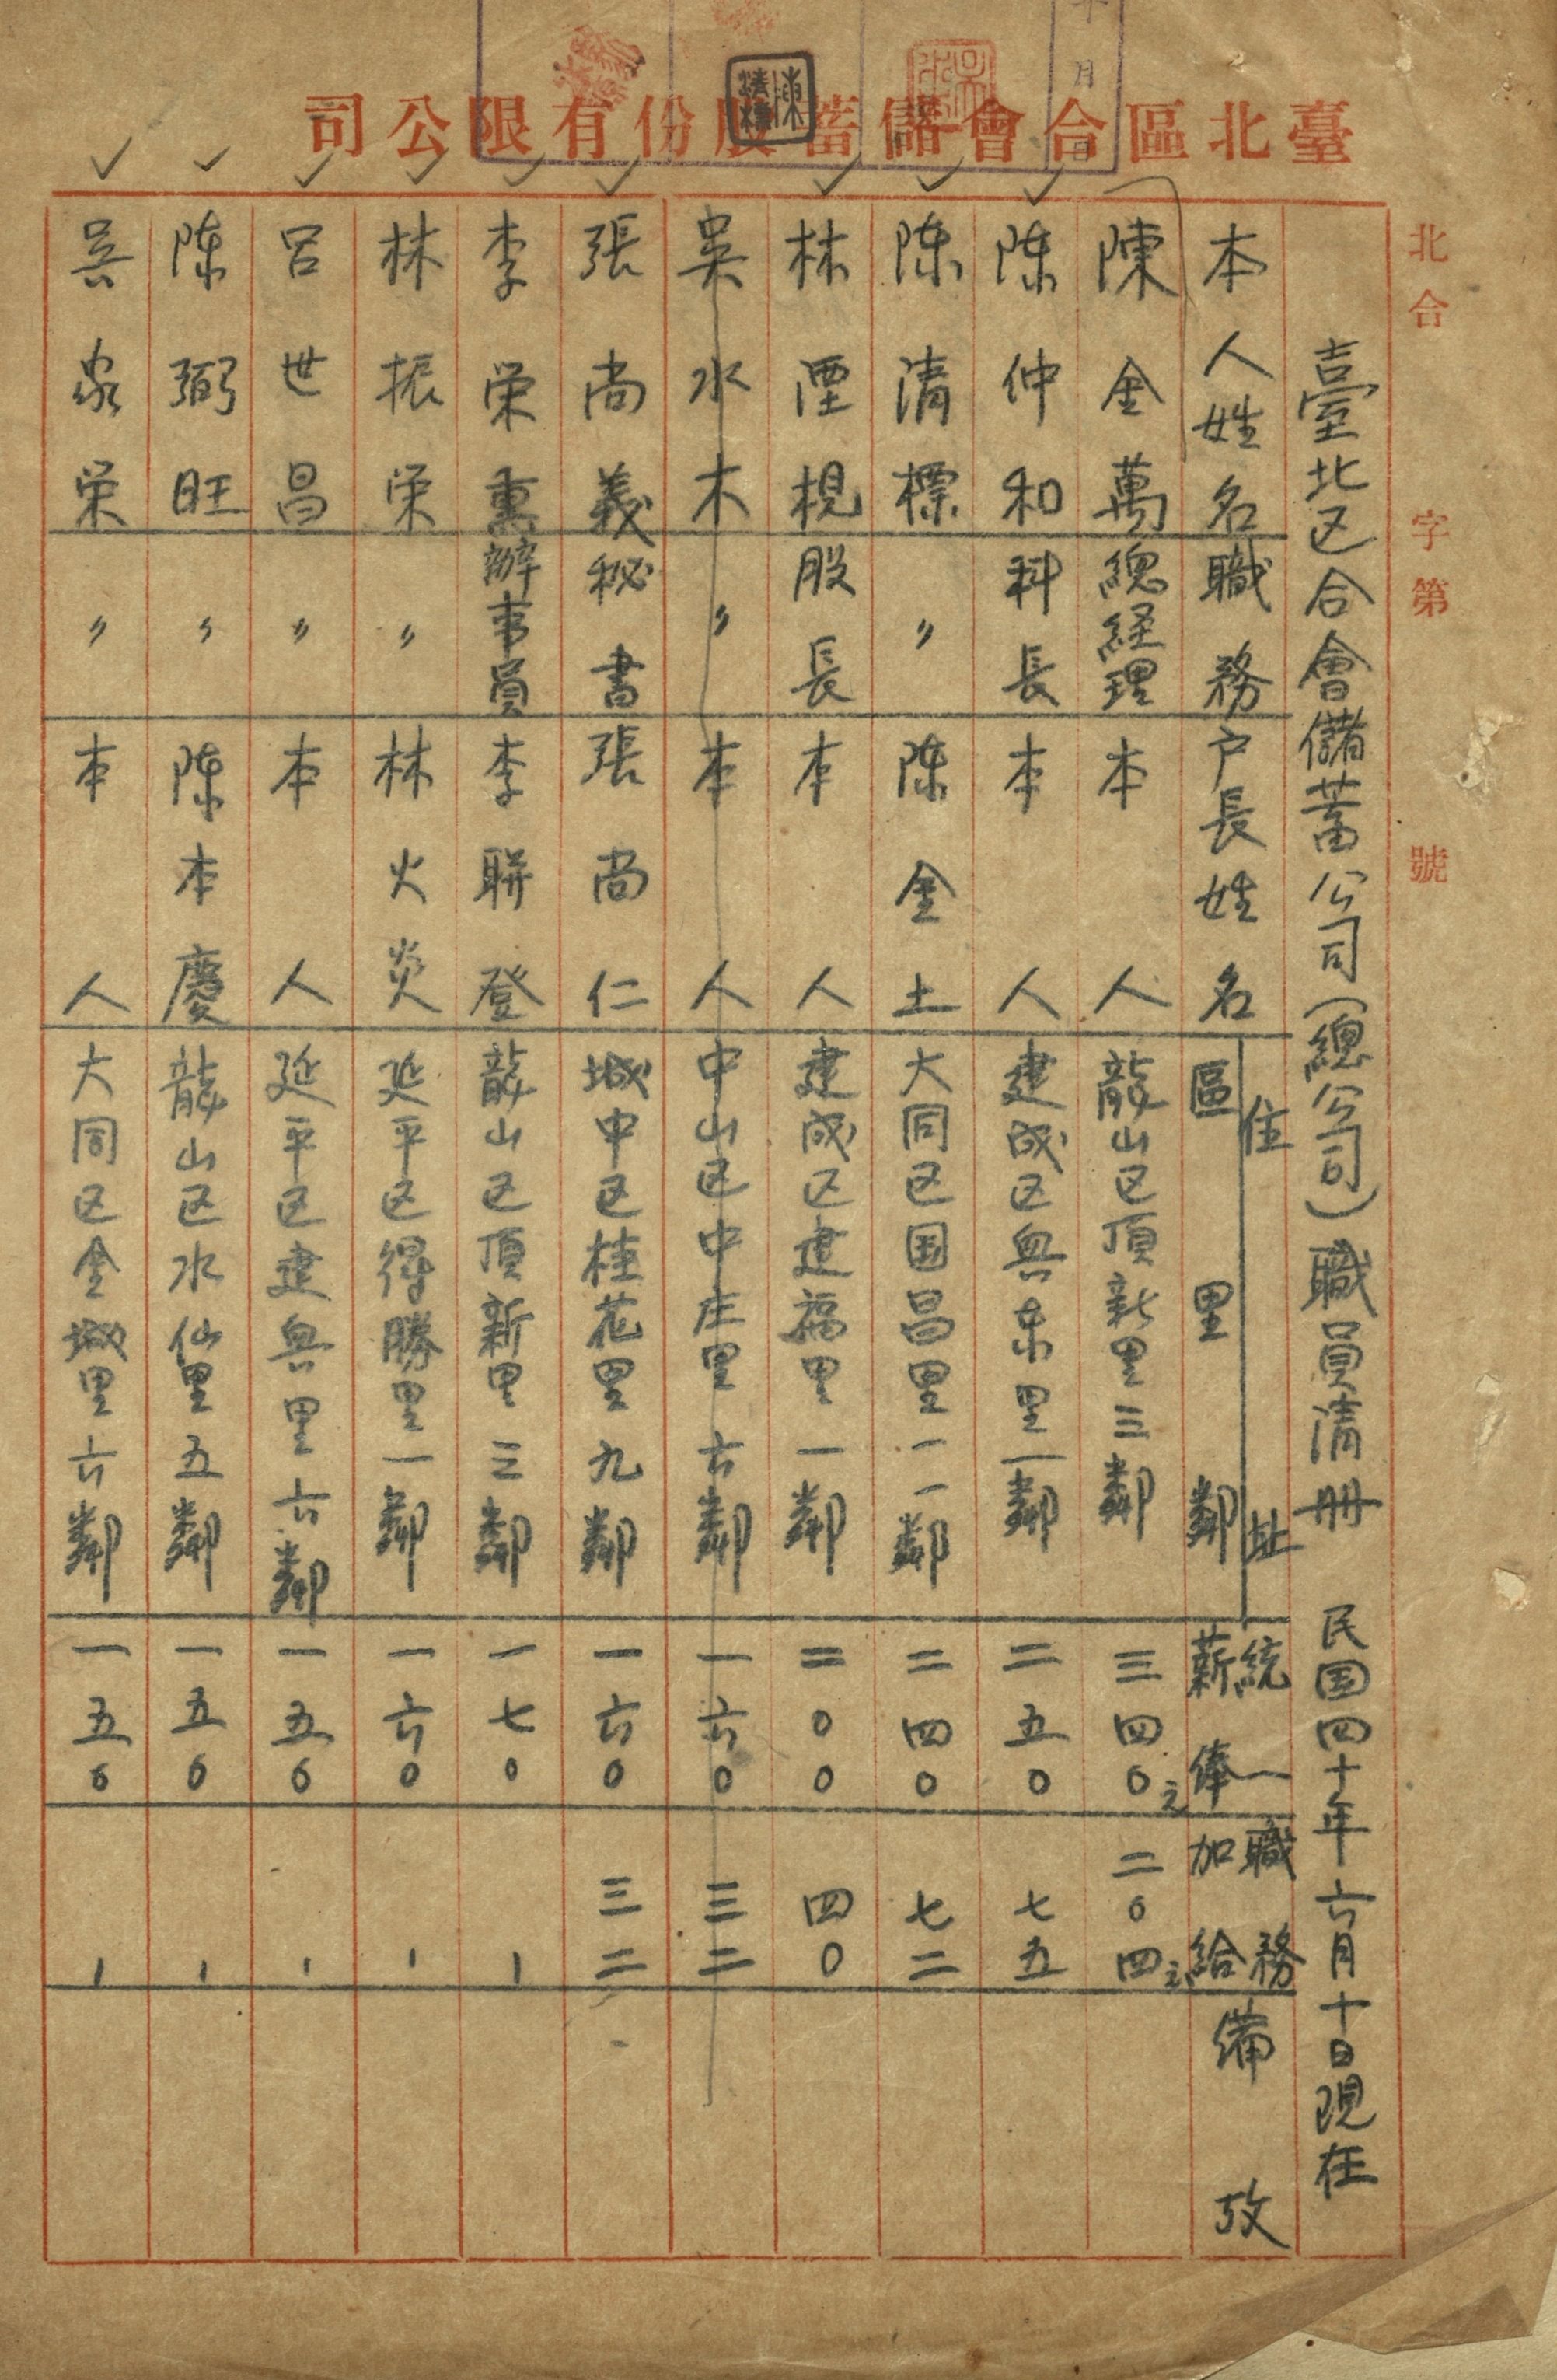 臺北區合會儲蓄股份有限公司
北合 字第 號
臺北区合會儲蓄公司(總公司)職員清册 民国四十年六月十日現在
本人姓名 職務 户長姓名 住址 區里鄰 統一薪俸 職務加給 備攷
陳金萬 總経理 本人 龍山区頂新里三鄰 三四0元 二0四元
陈仲和 科長 本人 建成区興东里一鄰 二五0 七五
陈清標 〃 陈金土 大同区国昌里一一鄰 二四0 七二
林湮梘 股長 本人 建成区建福里一鄰 二00 四0
吳水木 〃 本人 中山区中庄里六鄰 一六0 三二
張尚義 秘書 張尚仁 城中区桂花里九鄰 一六0 三二
李栄熏 辦事員 李聯登 龍山区頂新里三鄰 一七0 〡
林振栄 〃 林火炎 延平区得勝里一鄰 一六0 〡
呂世昌 〃 本人 延平区建興里六鄰 一五0 〡
陈弼旺 〃 陈本慶 龍山区水仙里五鄰 一五0 〡
吴家栄 〃 本人 大同区金城里六鄰 一五0 〡